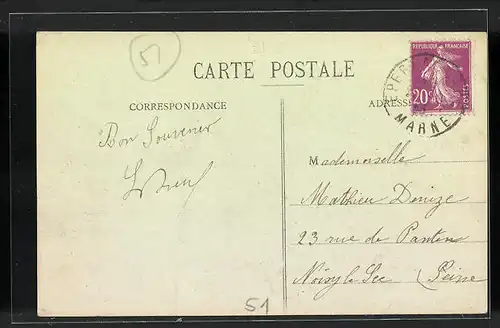 51
CARTE POSTALE
CORRESPONDANCE
ADRESSE
REPUBLIQUE FRANÇAISE
20c
POSTES
EPER
MARNE
Bon Souvenir
Mademoiselle
Mathieu Denize
23 rue de Pantin
Noisy le Sec (Seine
51